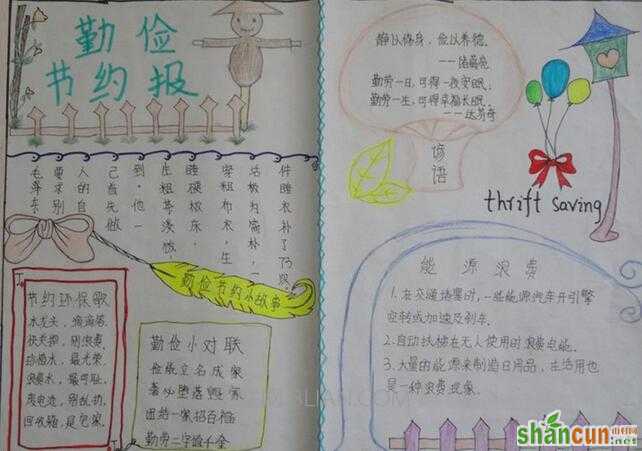 勤俭
节约报
毛泽东
要求别
人的自
己首先做
到,他一
生粗茶淡饭,
睡硬板床,
穿粗布衣,生
件睡衣补了73次
勤俭节约小故事
节约环保歌
水龙头,滴滴答,
快关掉,别浪费,
珍惜水,最光荣,
浪费水,最可耻,
废电池,别乱扔,
回收箱,是它家。
勤俭小对联
俭成立名成家
奢必堕落毁家
团结一家招百福
勤劳二字值千金
静以修身,俭以养德。
——诸葛亮
勤劳一日,可得一夜安眠;
勤劳一生,可得幸福长眠
——达芬奇
谚语
thrift saving
能源浪费
1.在交通堵塞时,一些能源汽车开引擎
空转或加速及刹车.
2.自动扶梯在无人使用时浪费电能.
3.大量的能源来制造日用品,在活用也
是一种浪费现象.
shancun
.net